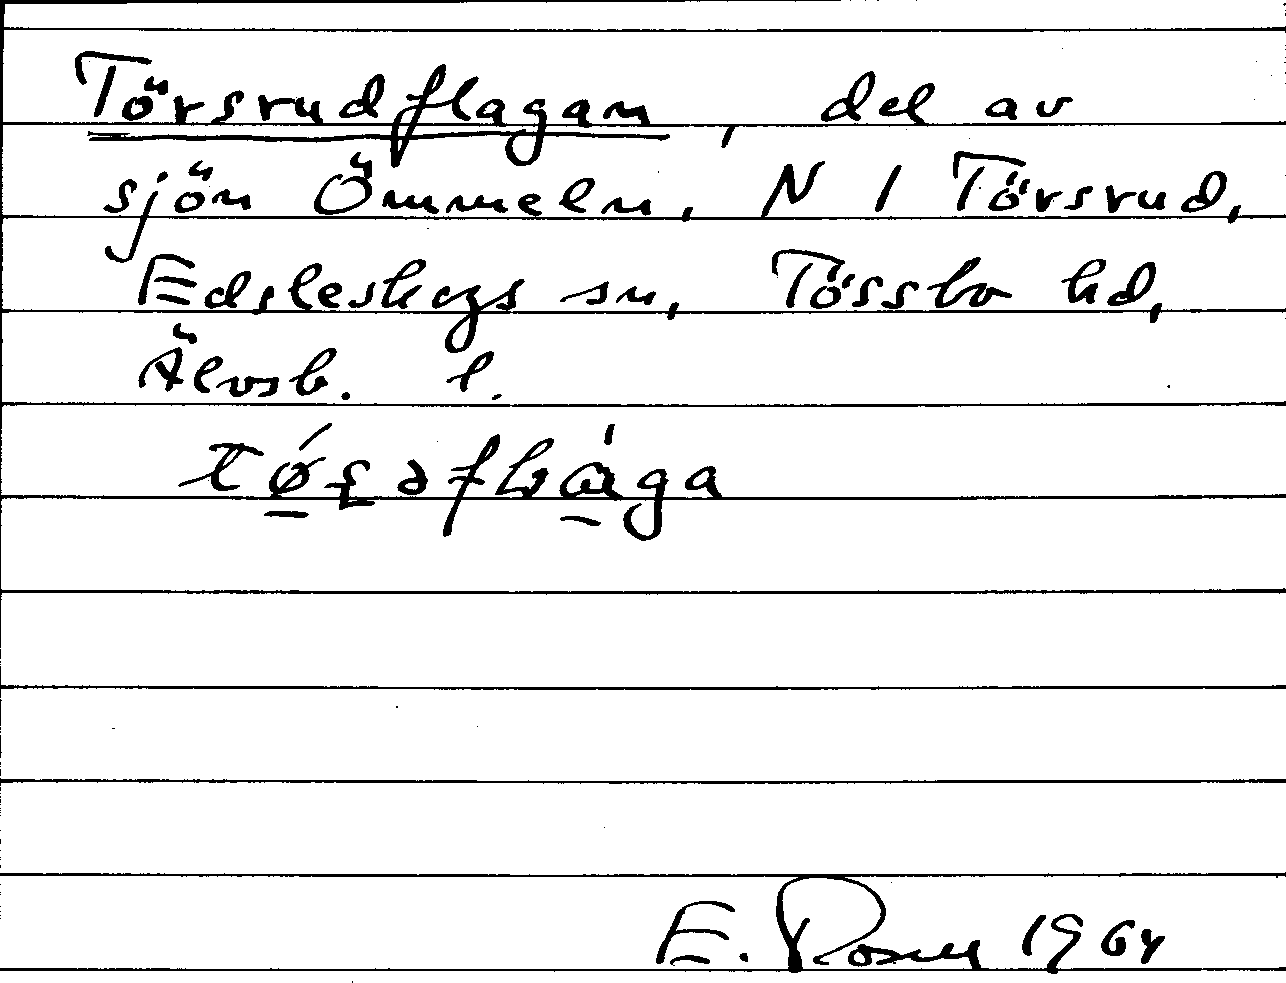 Törsrudflagan, del av
sjön Ömmeln, N / Törsrud,
Edsleskogs sn, Tössbo hd,
Älvsb. l.
E. Rosell 1964